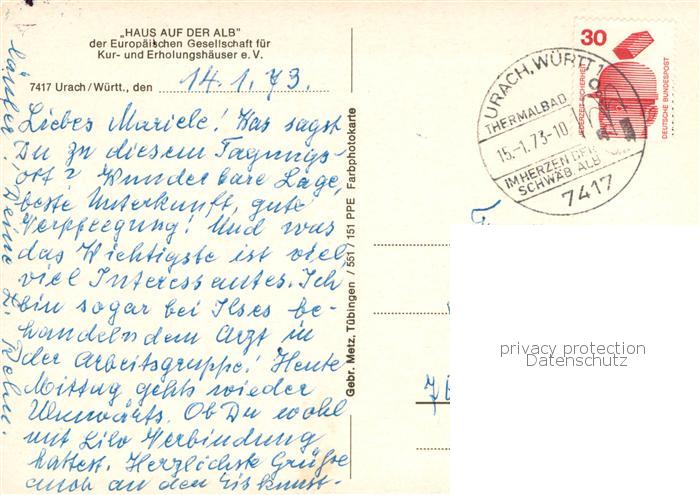 „HAUS AUF DER ALB"
der Europäischen Gesellschaft für
Kur- und Erholungshäuser e. V.
7417 Urach/Württ., den 14.1.73.
Liebes Mariele! Was sagst
Du zu diesem Tagungs-
ort? Wunderbare Lage,
beste Unterkunft, gute
Verpflegung! Und was
das Wichtigste ist viel
viel Interessantes. Ich
bin sogar bei Ilses be-
handelndem Arzt in
der Arbeitsgruppe! Heute
Mittag gehts wieder
Ulmwärts. Ob Du wohl
mit Lilo Verbindung
hattest. Herzlichste Grüße
auch an den Eiskunst-
läufer! Deine
Gebr. Metz, Tübingen / 551 / 151 PPE Farbphotokarte
30
JEDERZEIT SICHERHEIT
DEUTSCHE BUNDESPOST
URACH, WÜRTT 1
THERMALBAD
15.-1.73-10
IM HERZEN DER
SCHWÄB. ALB
7417
privacy protection
Datenschutz